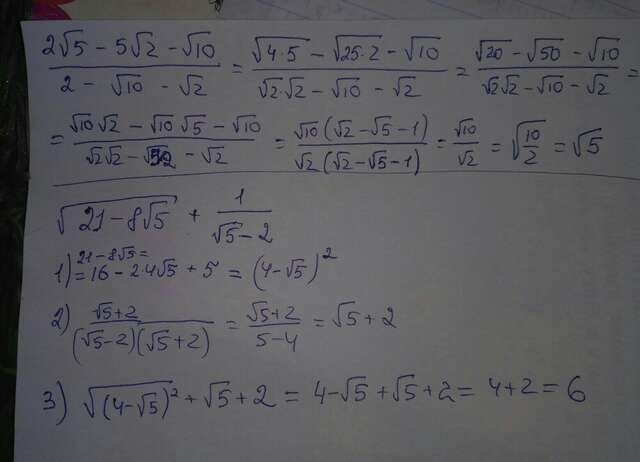 (2√5 − 5√2 − √10)/(2 − √10 − √2) = (√(4·5) − √(25·2) − √10)/(√2·√2 − √10 − √2) = (√20 − √50 − √10)/(√2√2 − √10 − √2) =
= (√10√2 − √10√5 − √10)/(√2√2 − √5√2 − √2) = (√10(√2 − √5 − 1))/(√2(√2 − √5 − 1)) = √10/√2 = √(10/2) = √5
√(21 − 8√5) + 1/(√5 − 2)
21 − 8√5 =
1) = 16 − 2·4√5 + 5 = (4 − √5)²
2) (√5 + 2)/((√5 − 2)(√5 + 2)) = (√5 + 2)/(5 − 4) = √5 + 2
3) √((4 − √5)²) + √5 + 2 = 4 − √5 + √5 + 2 = 4 + 2 = 6